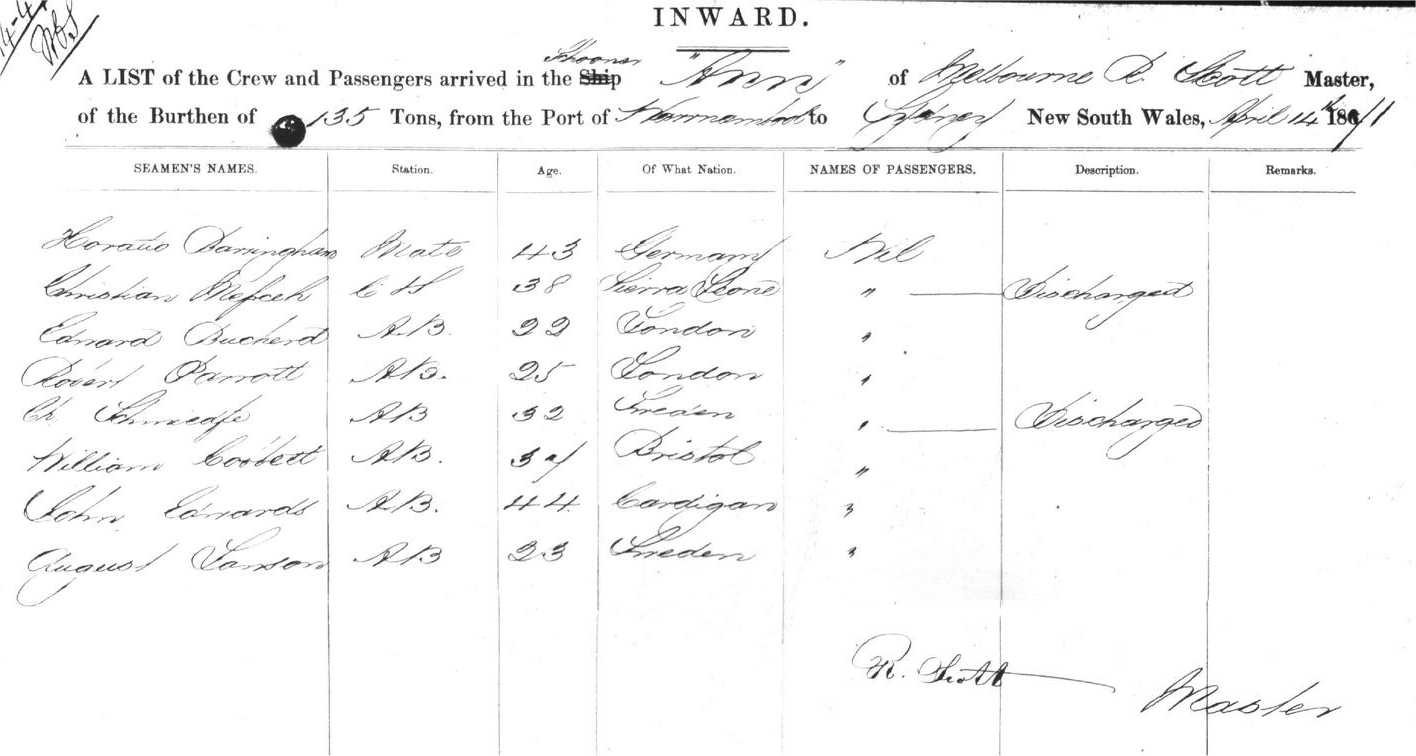 INWARD.
A LIST of the Crew and Passengers arrived in the Ship Schooner "Ann" of Melbourne R. Scott Master,
of the Burthen of 135 Tons, from the Port of to Sydney New South Wales, April 14th 1861
SEAMEN'S NAMES. Station. Age. Of What Nation. NAMES OF PASSENGERS. Description. Remarks.
Horatio Barringham Mate 43 Germany Nil
Christian C & S 38 Sierra Leone " Discharged
Edward Bucherd A.B. 22 London "
Robert Parrott A.B. 25 London "
Ch AB 32 Sweden " Discharged
William Cobbett A.B. 37 Bristol "
John Edwards A.B. 44 Cardigan "
August Lanson AB 23 Sweden "
R. Scott
Master